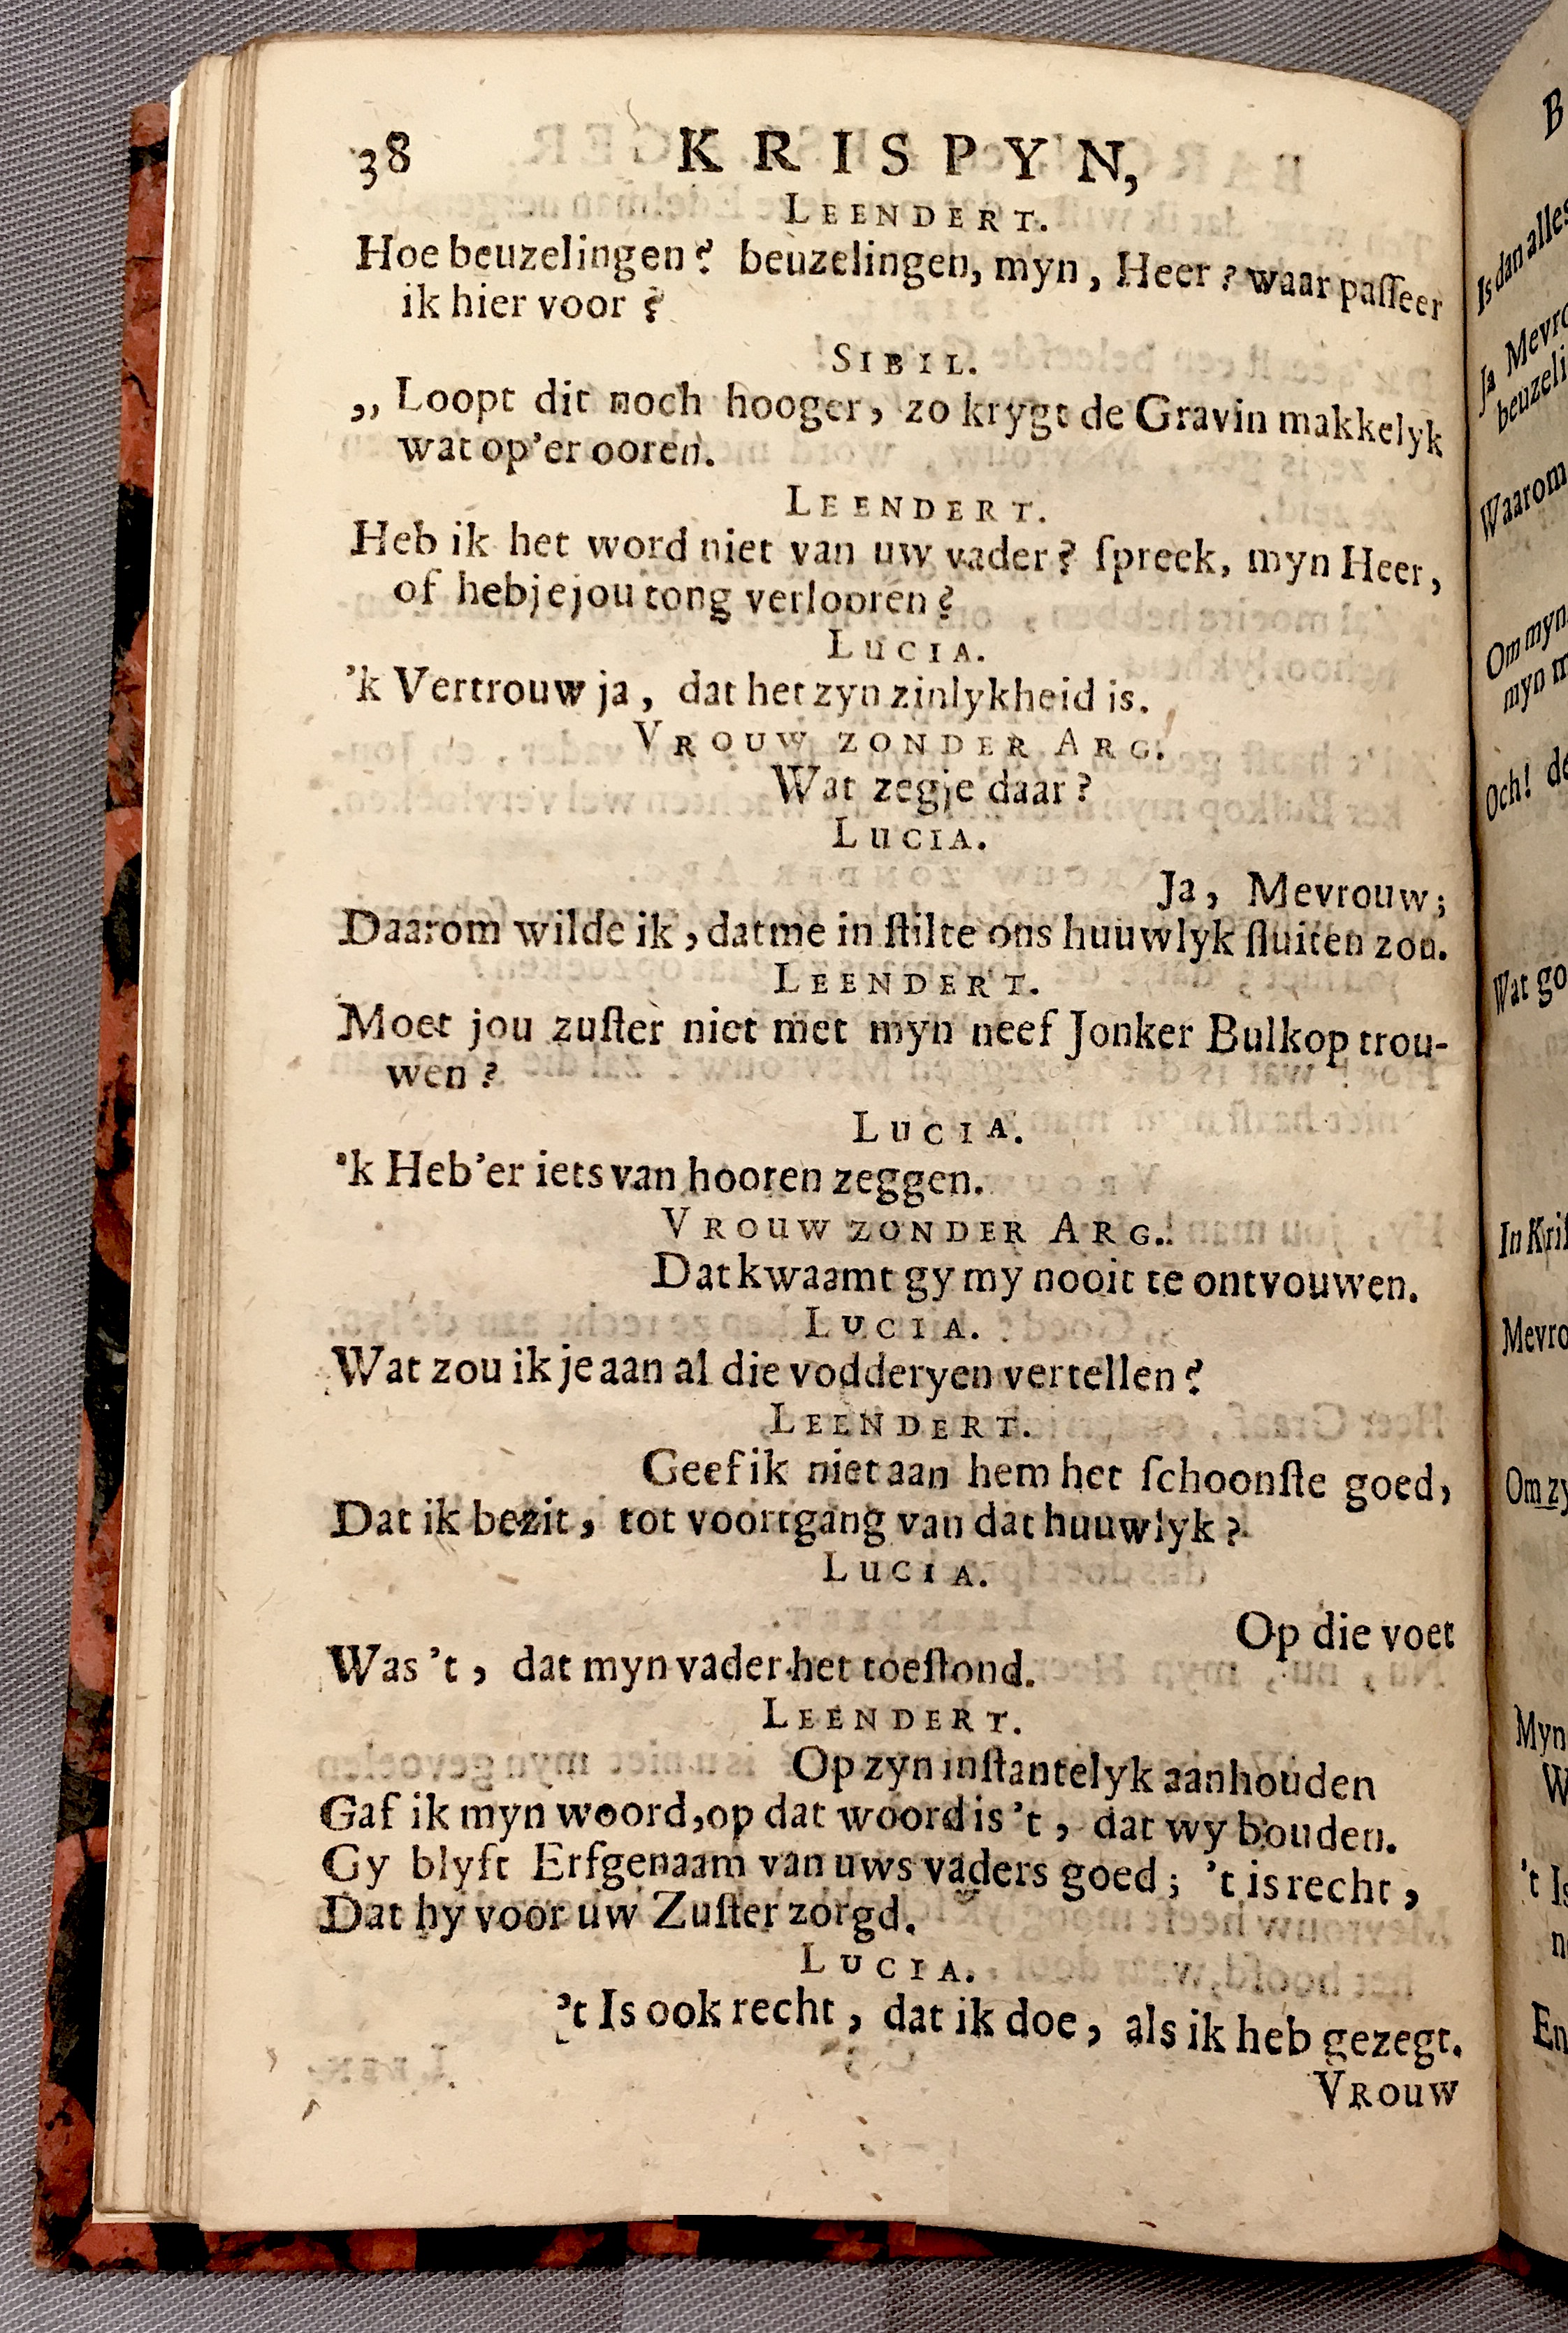 38 KRISPYN,
LEENDERT.
Hoe beuzelingen? beuzelingen, myn, Heer? waar paſſeer
ik hier voor?
SIBIL.
„ Loopt dit noch hooger, zo krygt de Gravin makkelyk
wat op'er ooren.
LEENDERT.
Heb ik het word niet van uw vader? ſpreek, myn Heer,
of hebjejou tong verlooren?
LUCIA.
'k Vertrouw ja, dat het zyn zinlykheid is.
VROUW ZONDER ARG.
Wat zegje daar?
LUCIA.
Ja, Mevrouw;
Daarom wilde ik, datme in ſtilte ons huuwlyk ſluiten zou.
LEENDERT.
Moet jou zuſter niet met myn neef Jonker Bulkop trou-
wen?
LUCIA.
'k Heb'er iets van hooren zeggen.
VROUW ZONDER ARG.
Dat kwaamt gy my nooit te ontvouwen.
LUCIA.
Wat zou ik je aan al die vodderyen vertellen?
LEENDERT.
Geef ik niet aan hem het ſchoonſte goed,
Dat ik bezit, tot voortgang van dat huuwlyk?
LUCIA.
Op die voet
Was 't, dat myn vader het toeſtond.
LEENDERT.
Op zyn inſtantelyk aanhouden
Gaf ik myn woord, op dat woord is 't, dat wy bouden.
Gy blyft Erfgenaam van uws vaders goed; 't is recht,
Dat hy voor uw Zuſter zorgd.
LUCIA.
't Is ook recht, dat ik doe, als ik heb gezegt.
VROUW
B
Is dan alles
Ja Mevro
beuzeli
Waarom
Om myn
myn m
Och! de
Wat go
In Kriſ
Mevro
Om zy
Myn
W
't Is
n
En